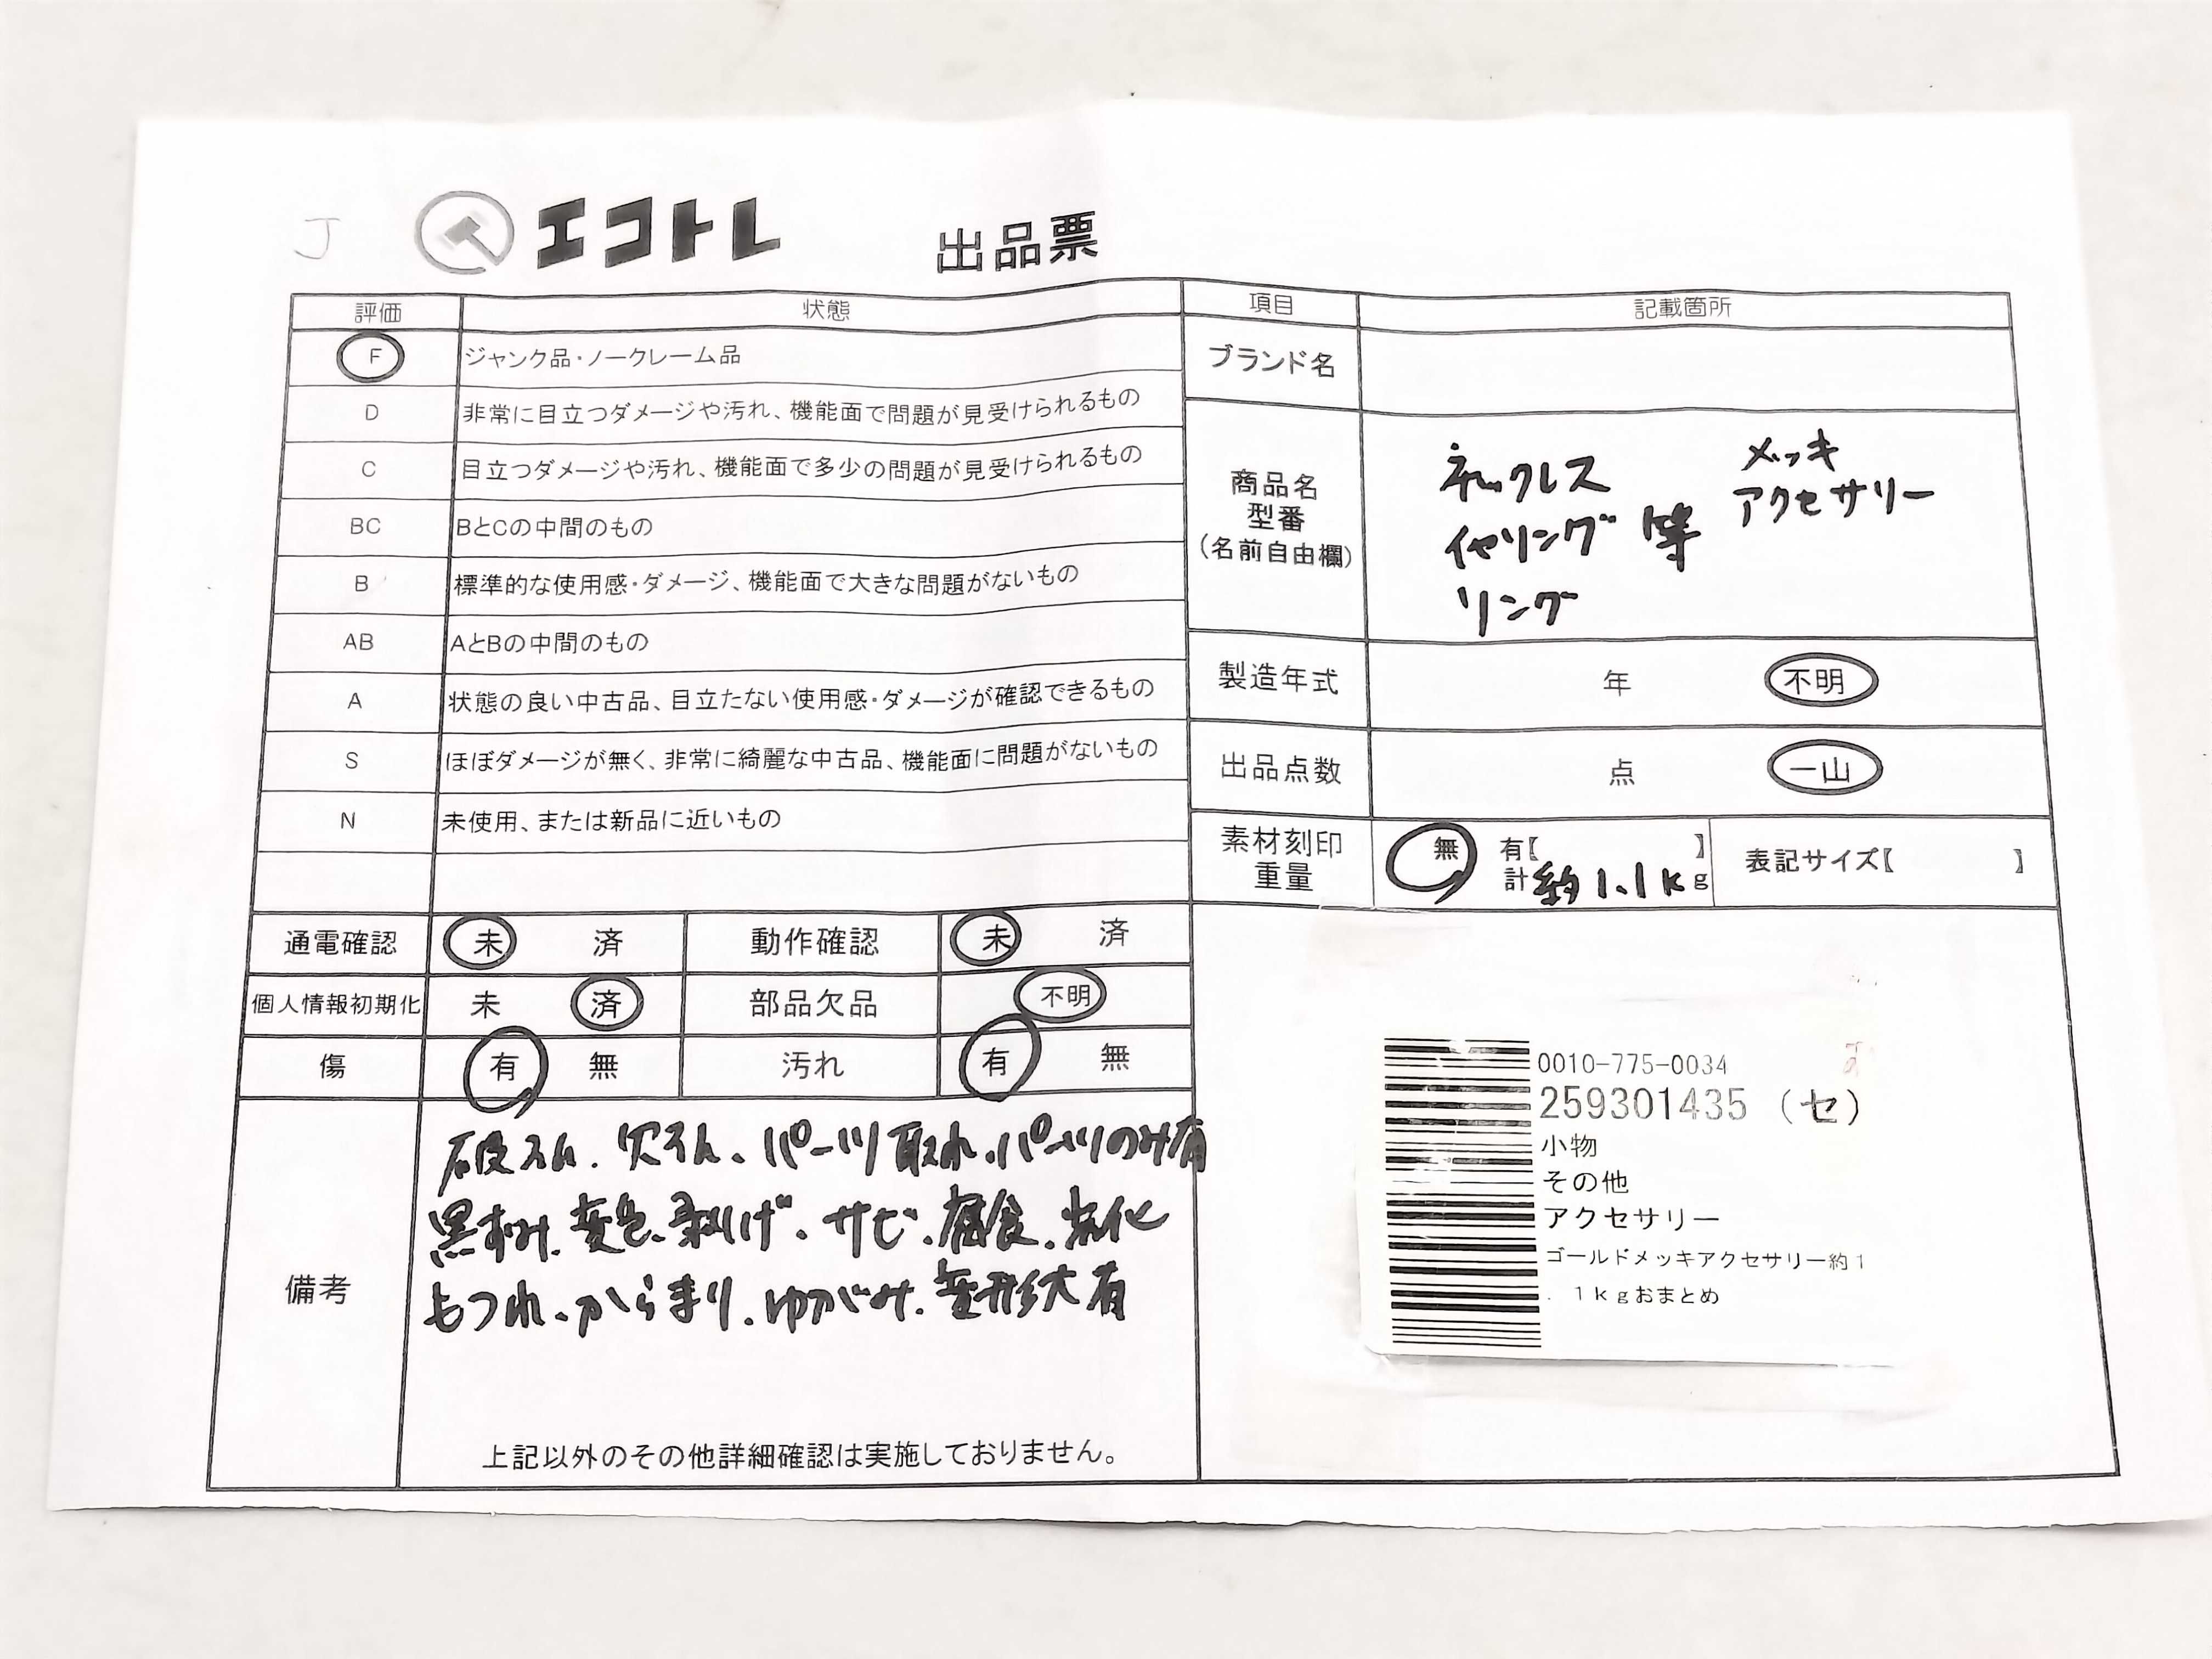 J
エコトレ 出品票
評価 状態
F ジャンク品・ノークレーム品
D 非常に目立つダメージや汚れ、機能面で問題が見受けられるもの
C 目立つダメージや汚れ、機能面で多少の問題が見受けられるもの
BC BとCの中間のもの
B 標準的な使用感・ダメージ、機能面で大きな問題がないもの
AB AとBの中間のもの
A 状態の良い中古品、目立たない使用感・ダメージが確認できるもの
S ほぼダメージが無く、非常に綺麗な中古品、機能面に問題がないもの
N 未使用、または新品に近いもの
項目 記載箇所
ブランド名
商品名
型番
(名前自由欄)
ネックレス
イヤリング 等
リング
メッキ
アクセサリー
製造年式 年 不明
出品点数 点 一山
素材刻印
重量
無 有【 】
計約1.1kg
表記サイズ【 】
通電確認 未 済 動作確認 未 済
個人情報初期化 未 済 部品欠品 不明
傷 有 無 汚れ 有 無
備考
破損、欠損、パーツ取れ、パーツのみ有
黒ずみ、変色、剥げ、サビ、腐食、劣化
もつれ、からまり、ゆがみ、変形大有
上記以外のその他詳細確認は実施しておりません。
0010-775-0034
259301435 (セ)
小物
その他
アクセサリー
ゴールドメッキアクセサリー約1
.1kgおまとめ